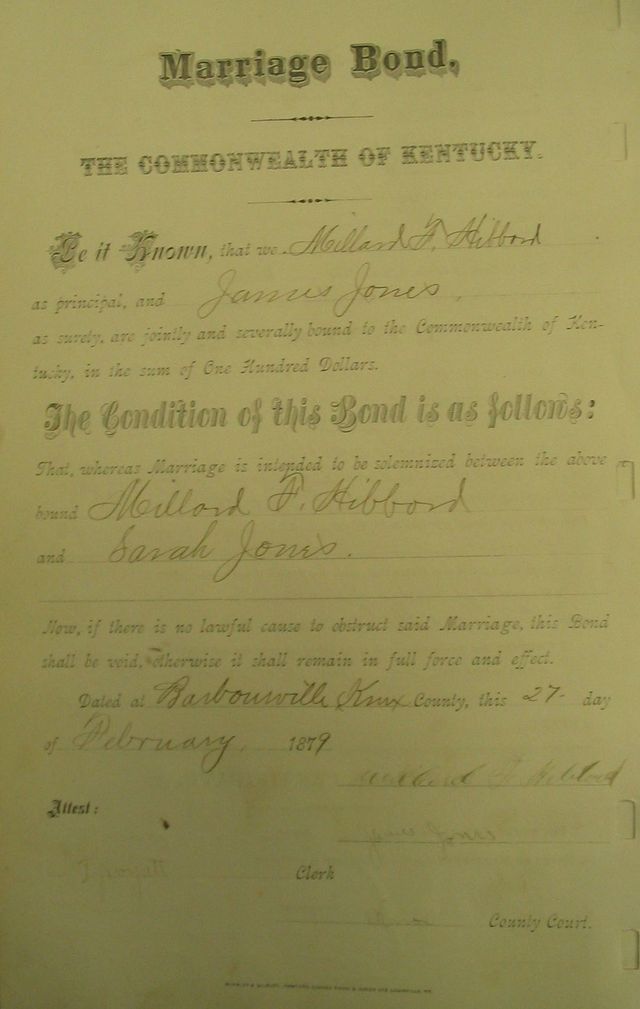 Marriage Bond,
THE COMMONWEALTH OF KENTUCKY.
Be it Known, that we Millard F. Hibbord
as principal, and James Jones,
as surety, are jointly and severally bound to the Commonwealth of Ken-
tucky, in the sum of One Hundred Dollars.
The Condition of this Bond is as follows:
That, whereas Marriage is intended to be solemnized between the above
bound Millard F. Hibbord
and Sarah Jones.
Now, if there is no lawful cause to obstruct said Marriage, this Bond
shall be void, otherwise it shall remain in full force and effect.
Dated at Barbourville Knox County, this 27 day
of February, 1879
Millard F. Hibbord
Attest:
Jones
Clerk
County Court.